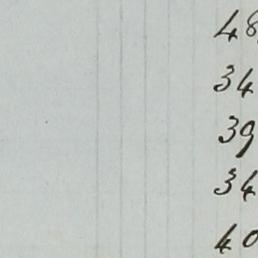 48
34
39
34
40